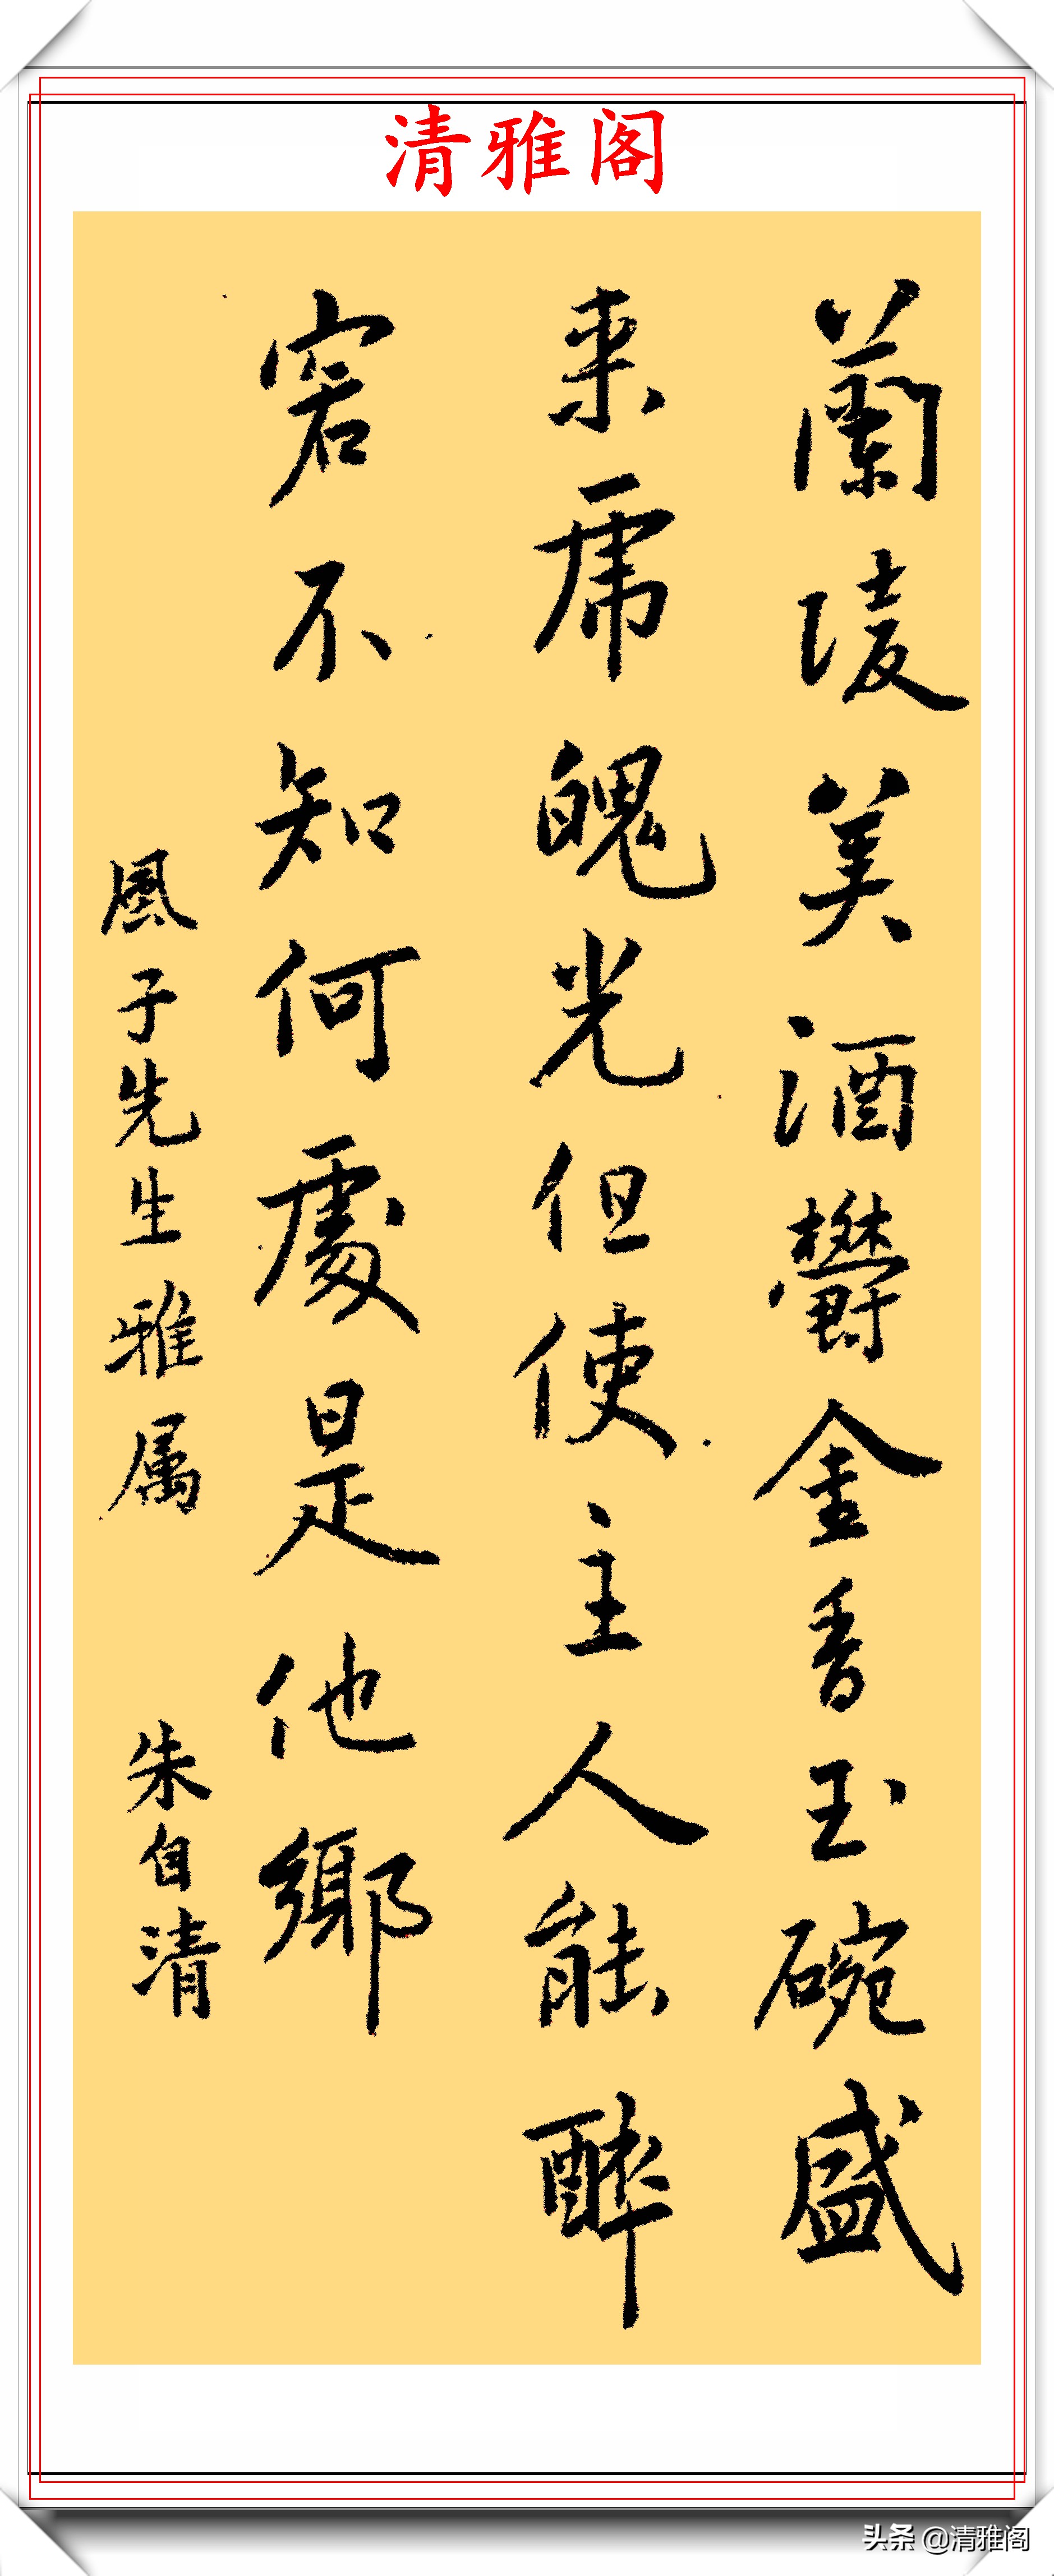 清雅阁
蘭陵美酒欝金香玉碗盛
来虎魄光但使主人能醉
客不知何處是他鄉
風子先生雅属 朱自清
头条 @清雅阁